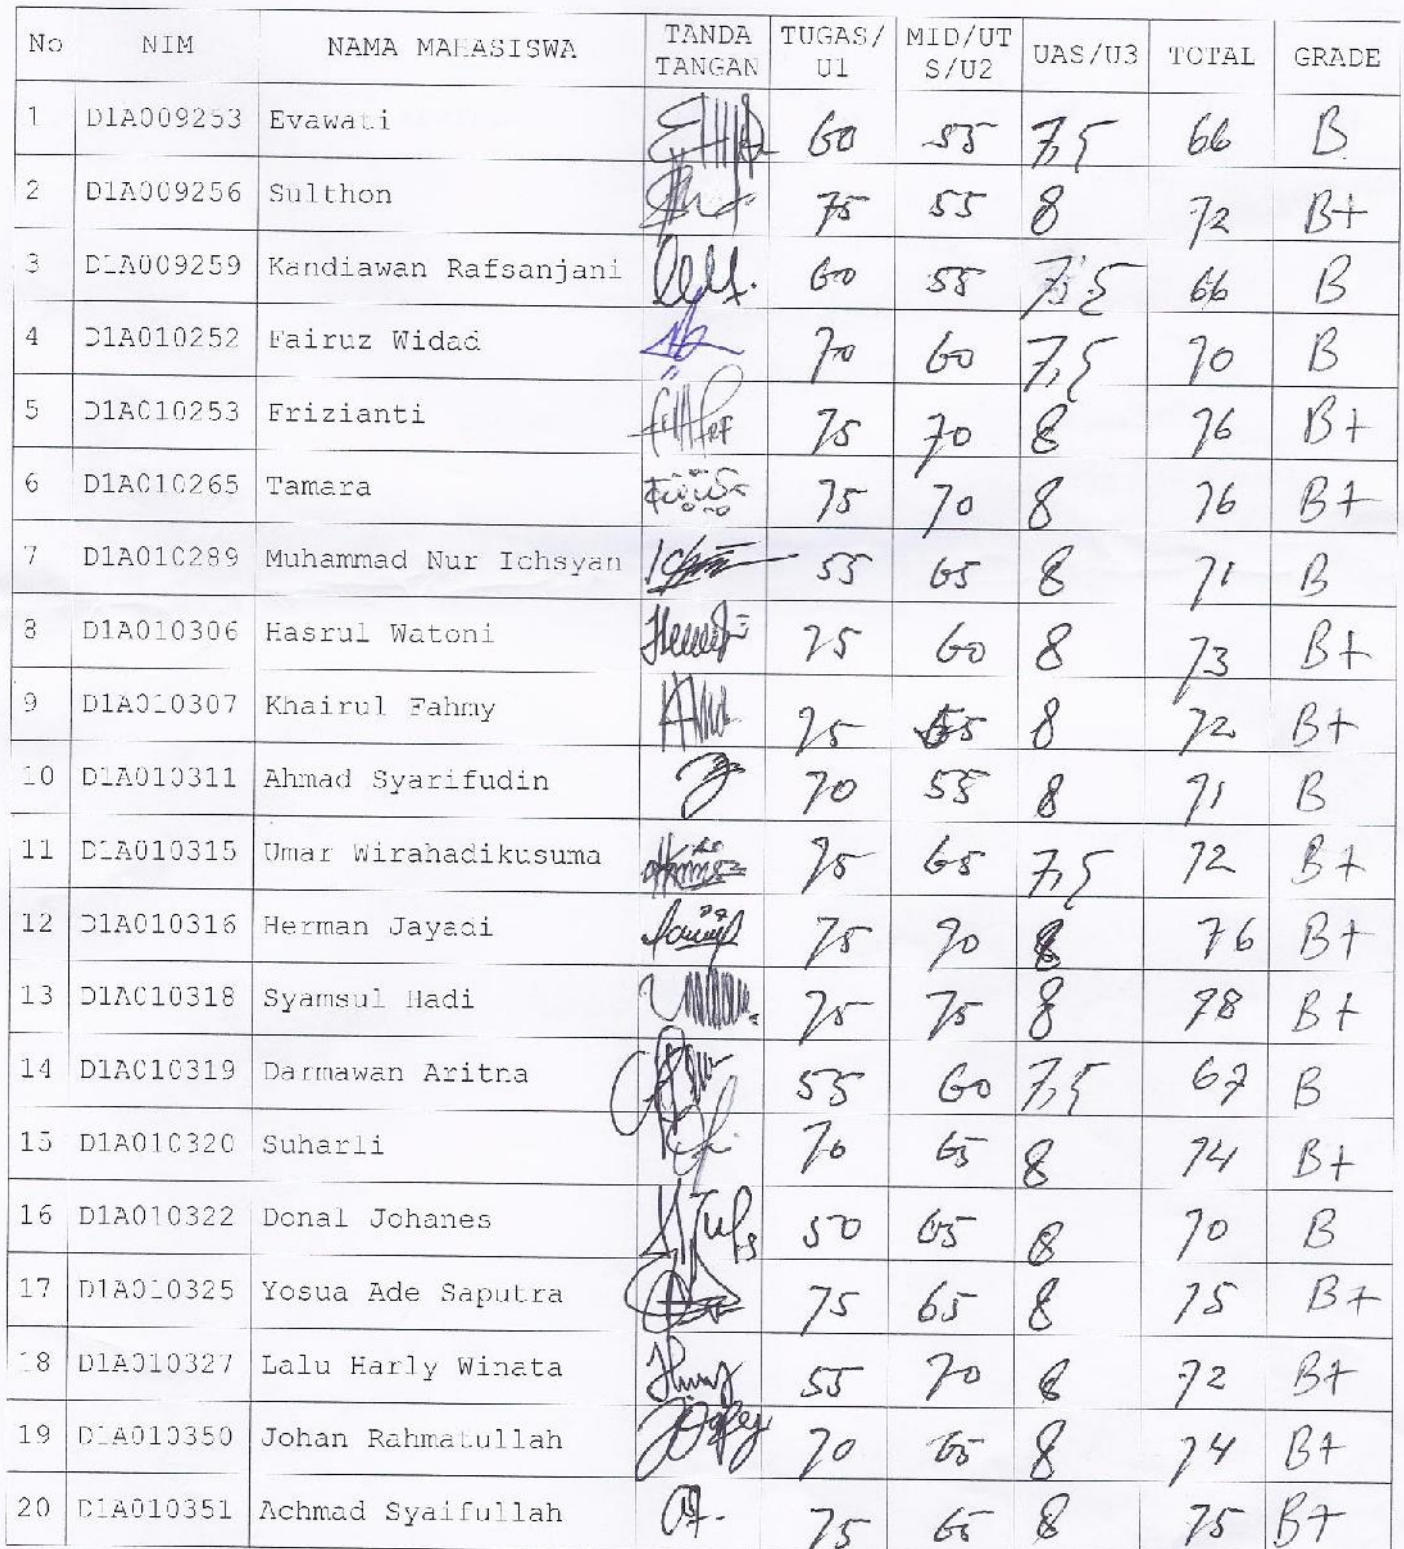 No NIM NAMA MAHASISWA TANDA TANGAN TUGAS/U1 MID/UTS/U2 UAS/U3 TOTAL GRADE
1 D1A009253 Evawati 60 55 7,5 66 B
2 D1A009256 Sulthon 75 55 8 72 B+
3 D1A009259 Kandiawan Rafsanjani 60 55 7,5 66 B
4 D1A010252 Fairuz Widad 70 60 7,5 70 B
5 D1A010253 Frizianti 75 70 8 76 B+
6 D1A010265 Tamara 75 70 8 76 B+
7 D1A010289 Muhammad Nur Ichsyan 55 65 8 71 B
8 D1A010306 Hasrul Watoni 75 60 8 73 B+
9 D1A010307 Khairul Fahmy 75 55 8 72 B+
10 D1A010311 Ahmad Syarifudin 70 55 8 71 B
11 D1A010315 Umar Wirahadikusuma 75 65 7,5 72 B+
12 D1A010316 Herman Jayadi 75 70 8 76 B+
13 D1A010318 Syamsul Hadi 75 75 8 78 B+
14 D1A010319 Darmawan Aritna 55 60 7,5 67 B
15 D1A010320 Suharli 70 65 8 74 B+
16 D1A010322 Donal Johanes 50 65 8 70 B
17 D1A010325 Yosua Ade Saputra 75 65 8 75 B+
18 D1A010327 Lalu Harly Winata 55 70 8 72 B+
19 D1A010350 Johan Rahmatullah 70 65 8 74 B+
20 D1A010351 Achmad Syaifullah 75 65 8 75 B+